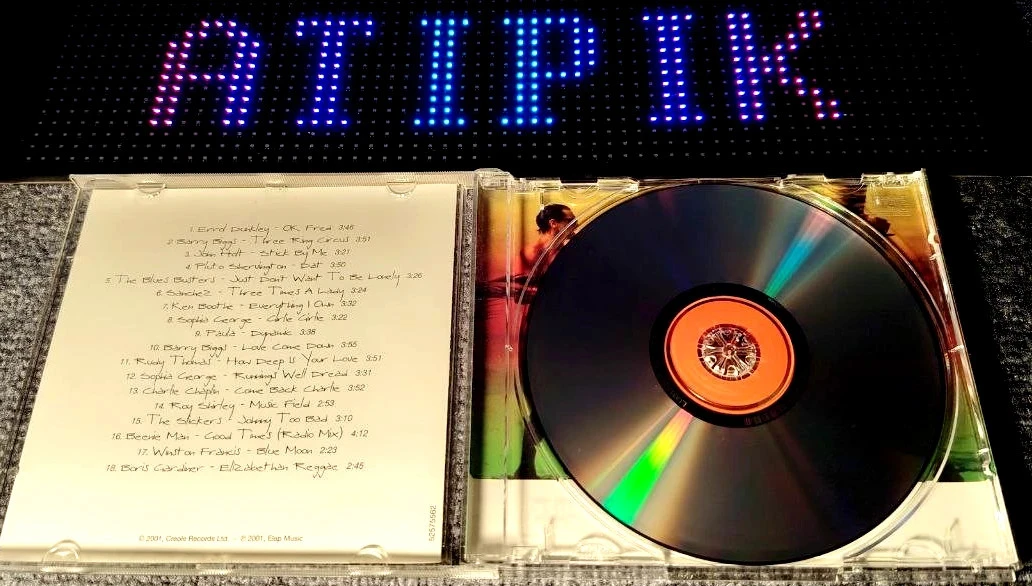 ATIPIK
1. Errol Dunkley - OK Fred 3:48
2. Barry Biggs - Three Ring Circus 3:51
3. John Holt - Stick By Me 3:21
4. Pluto Shervington - Dat 3:50
5. The Blues Busters - Just Dont Want To Be Lonely 3:26
6. Sanchez - Three Times A Lady 3:24
7. Ken Boothe - Everything I Own 3:32
8. Sophia George - Girlie Girlie 3:22
9. Paula - Dynamic 3:38
10. Barry Biggs - Love Come Down 3:55
11. Rudy Thomas - How Deep Is Your Love 3:51
12. Sophia George - Runnings Well Dread 3:31
13. Charlie Chaplin - Come Back Charlie 3:52
14. Roy Shirley - Music Field 2:53
15. The Slickers - Johnny Too Bad 3:10
16. Beenie Man - Good Times (Radio Mix) 4:12
17. Winston Francis - Blue Moon 2:23
18. Boris Gardner - Elizabethan Reggae 2:45
© 2001, Creole Records Ltd. - ℗ 2001, Elap Music
52575562